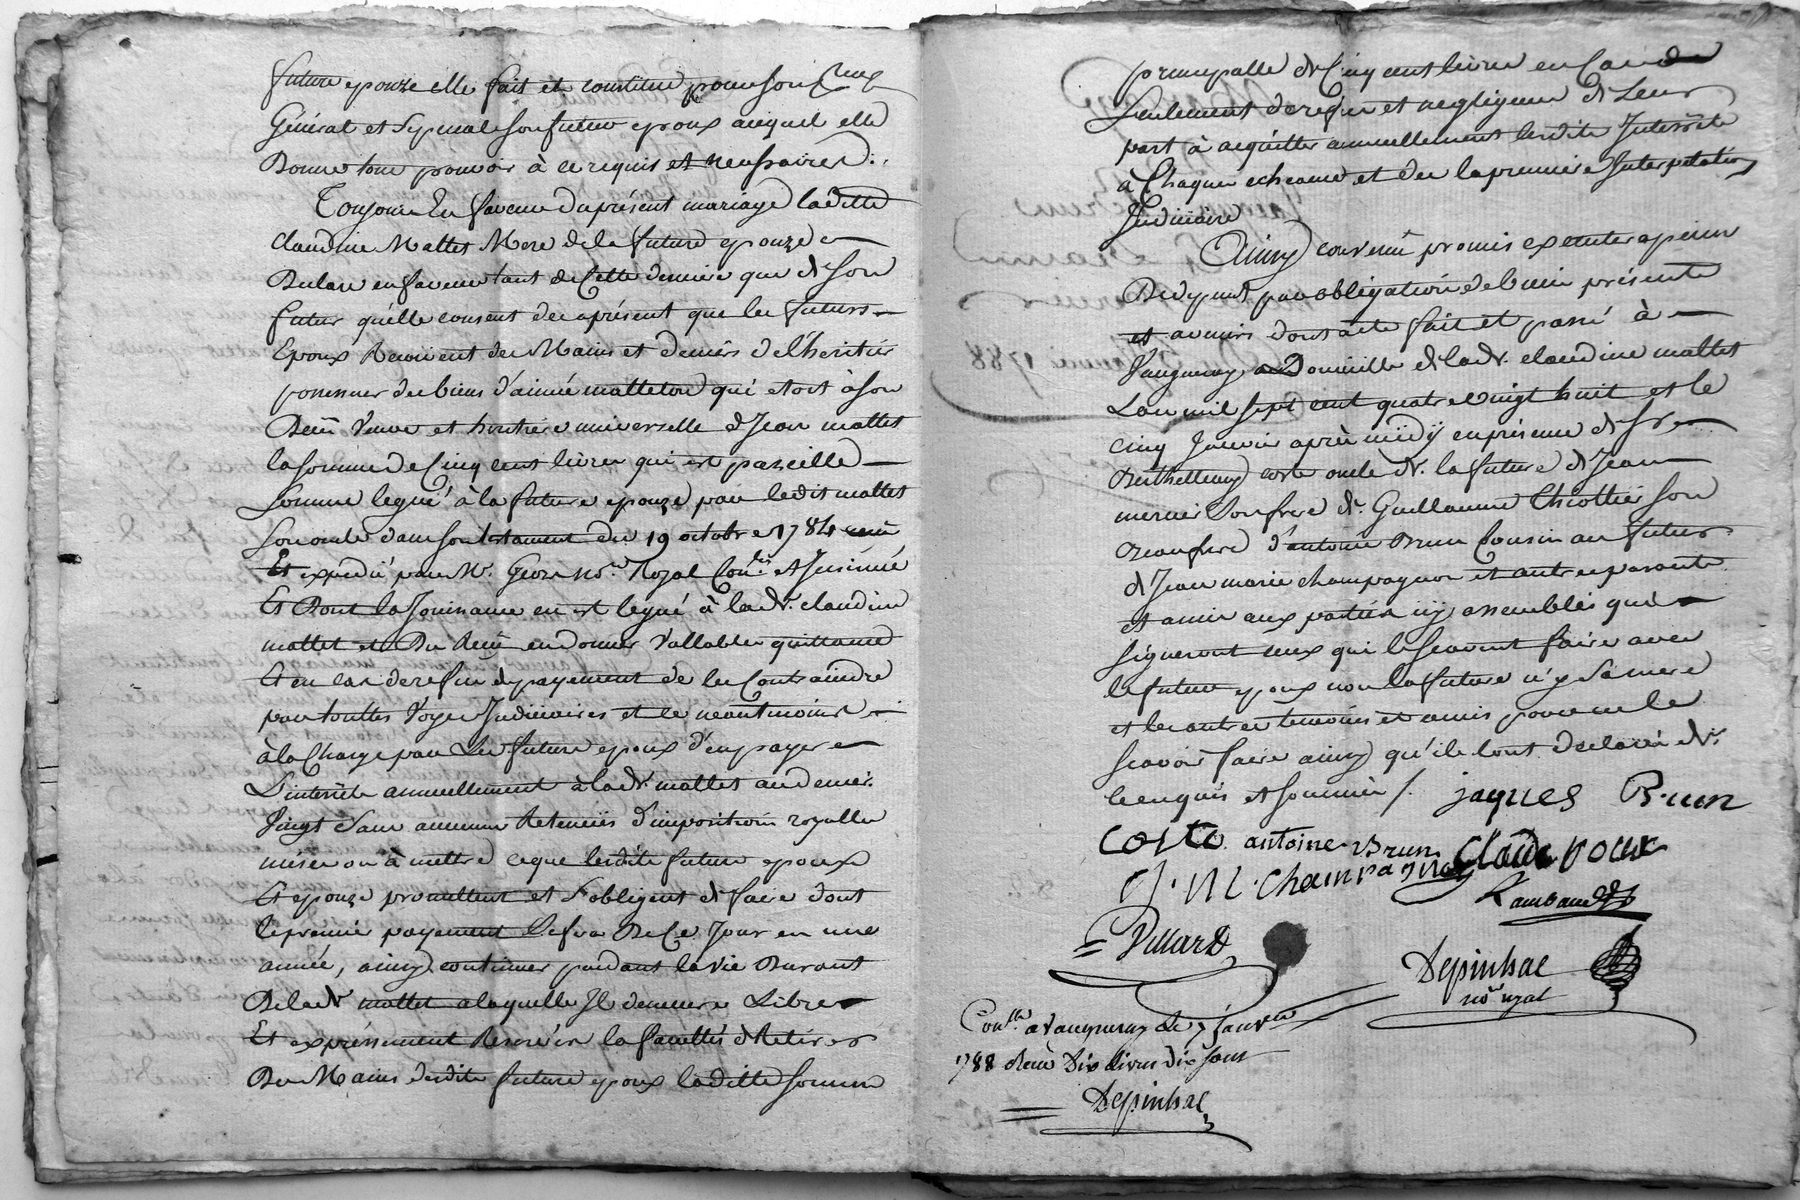 future epouze elle fait et constitue pour son
Général et Special son futur epoux auquel elle
Donne tout pouvoir à ce requis et necessaires
Toujours En faveur du présent mariage laditte
claudine Mattet Mere de la future epouze
Declare en faveur tant de Cette derniere que de son
futur qu'elle consent des aprésent que les futurs
Epoux Recoivent des Mains et deniers de l'heritier
possesseur des biens d'aimé mattet qui etoit à son
Deces Veuve et heritiere universelle de Jean mattet
la somme de Cinq cent livres qui est pareille
Somme legué à la future epouze par ledit mattet
Son oncle dans son testament du 19 octobre 1784
Et expedié par Me. not. Royal et Insinué
Et Dont la Jouissance en est legué à lad. claudine
mattet et en donner Vallables quittance
Et en cas de refus de payement de les Contraindre
par touttes Voyes Judiciaires et ce neantmoins
à la Charge par Les future epoux d'en payer
L'interrets annuellement à lad. mattet au denier
Vingt Sans aucunes Retenües d'impositions royalles
mises ou à mettre ce que lesdits future epoux
Et epouze promettent et S'obligent de faire dont
le premier payement Se fera De Ce Jour en une
année, ainsy continuer pendant la vie Durant
De lad. mattet a laquelle Il demeure Libre
Et expressément Reservés la facultés de Retirer
Des Mains desdits future epoux laditte somme
principalle de Cinq cent livres en Cas de
Seulement de refus et negligence de Leur
part à acquitter annuellement lesdits Interrets
à Chaques echeances et des la premiere Interpelation
Judiciaire
Ainsy convenu promis executer a peine
De dépens par obligation de biens présents
et avenirs dont acte fait et passé à
Vaugneray au Domicille de lad. claudine mattet
L'an mil sept cent quatre vingt huit et le
cinq Janvier après midÿ en présence de Sr
Berthellemy coste oncle de la future de Jean
mercier Son frere de Guillaume Chiottier son
Beaufrere d'antoine Brun Cousin au futur
de Jean marie champagnon et autres parents
et amis aux parties icy assemblés qui
signeront ceux qui le scavent faire avec
le future epoux non la future n'y Sa mere
et les autres temoins et amis pour ne le
scavoir faire ainsy qu'ils l'ont declarés de
ce enquis et sommés /. jaques Brun
Coste antoine Brun Claude roux
J. M. Champagnon Rambaud
Villard
Depinhac
nore royal
Conllé a Vaugneray le 7 janvier
1788 Reçu Dix livres dix sous
Depinhac